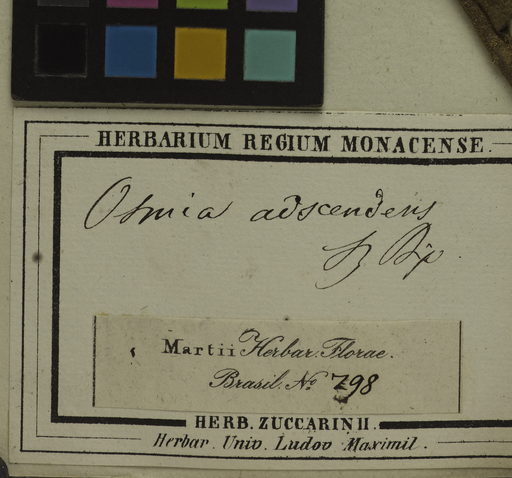 HERBARIUM REGIUM MONACENSE.
Osmia adscendens
Sz Bip.
Martii Herbar. Florae.
Brasil. No 798
HERB. ZUCCARINII.
Herbar. Univ. Ludov Maximil.